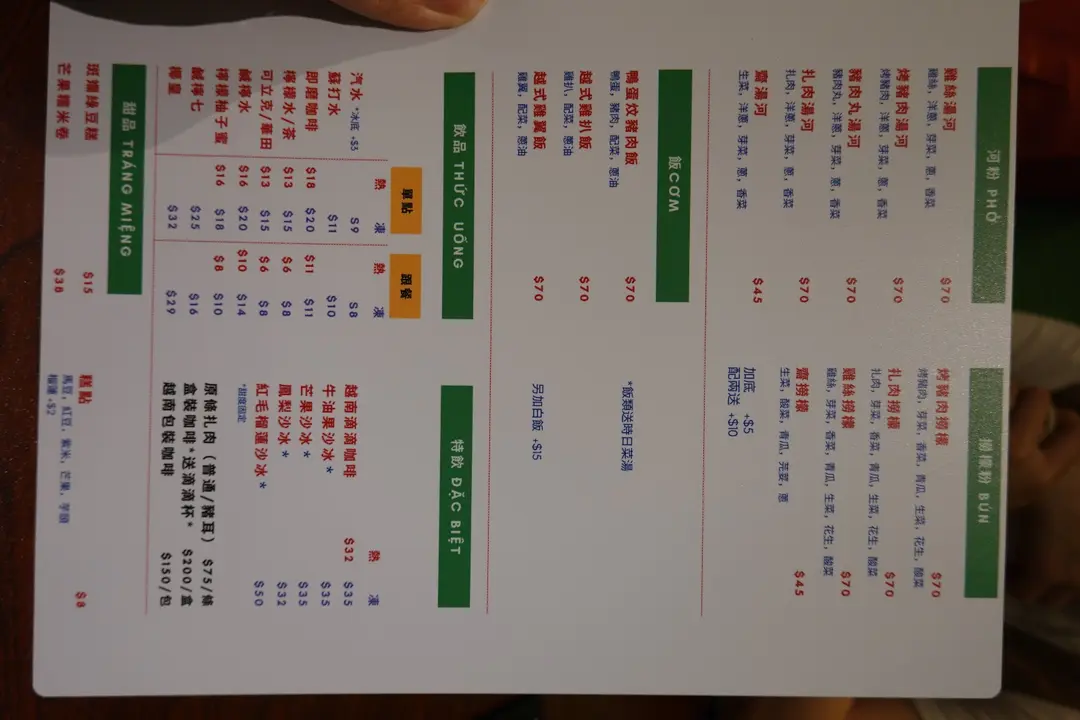 河粉 PHỞ
雞絲湯河 $70
雞絲，洋蔥，芽菜，蔥，香菜
烤豬肉湯河 $70
烤豬肉，洋蔥，芽菜，蔥，香菜
豬肉丸湯河 $70
豬肉丸，洋蔥，芽菜，蔥，香菜
扎肉湯河 $70
扎肉，洋蔥，芽菜，蔥，香菜
齋湯河 $45
生菜，洋蔥，芽菜，蔥，香菜
撈檬粉 BÚN
烤豬肉撈檬 $70
烤豬肉，芽菜，香菜，青瓜，生菜，花生，酸菜
扎肉撈檬 $70
扎肉，芽菜，香菜，青瓜，生菜，花生，酸菜
雞絲撈檬 $70
雞絲，芽菜，香菜，青瓜，生菜，花生，酸菜
齋撈檬 $45
生菜，酸菜，青瓜，芫荽，蔥
加底 +$5
配兩送 +$10
飯 CƠM
鴨蛋炆豬肉飯 $70
鴨蛋，豬肉，配菜，蔥油
越式雞扒飯 $70
雞扒，配菜，蔥油
越式雞翼飯 $70
雞翼，配菜，蔥油
*飯類送時日菜湯
另加白飯 +$15
飲品 THỨC UỐNG
單點 跟餐
熱 凍 熱 凍
汽水 *冰底 +$3 $9 $8
蘇打水 $11 $10
即磨咖啡 $18 $20 $11 $11
檸檬水/茶 $13 $15 $6 $8
可立克/華田 $13 $15 $6 $8
鹹檸水 $16 $20 $10 $14
檸檬柚子蜜 $16 $18 $8 $10
鹹檸七 $25 $16
椰皇 $32 $29
特飲 ĐẶC BIỆT
熱 凍
越南滴滴咖啡 $32 $35
牛油果沙冰* $35
芒果沙冰* $35
鳳梨沙冰* $32
紅毛榴蓮沙冰* $50
*甜度固定
原條扎肉（普通/豬耳） $75/條
盒裝咖啡*送滴滴杯* $200/盒
越南包裝咖啡 $150/包
甜品 TRÁNG MIỆNG
斑斕綠豆糕 $15
芒果糯米卷 $38
糕點 $8
馬豆，紅豆，紫米，芒果，芋頭
榴蓮 +$2